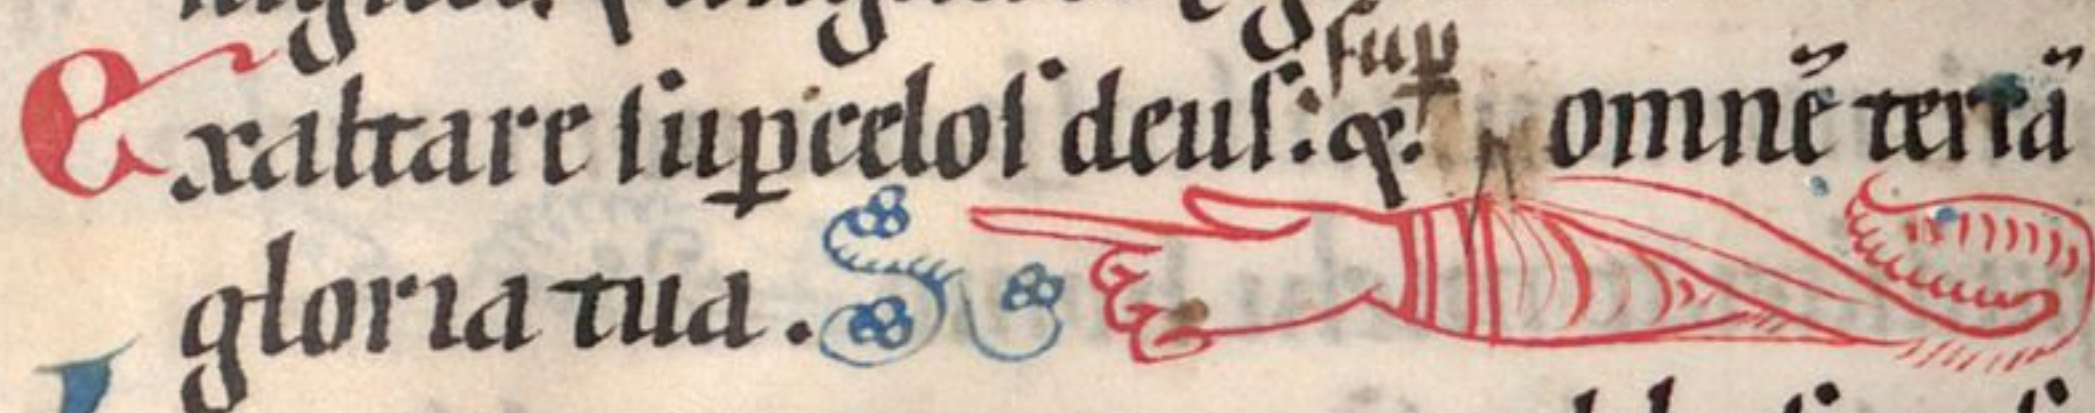 Exaltare sup̲ celos deus: ⁊ sup̲ omnē terrā
gloria tua.